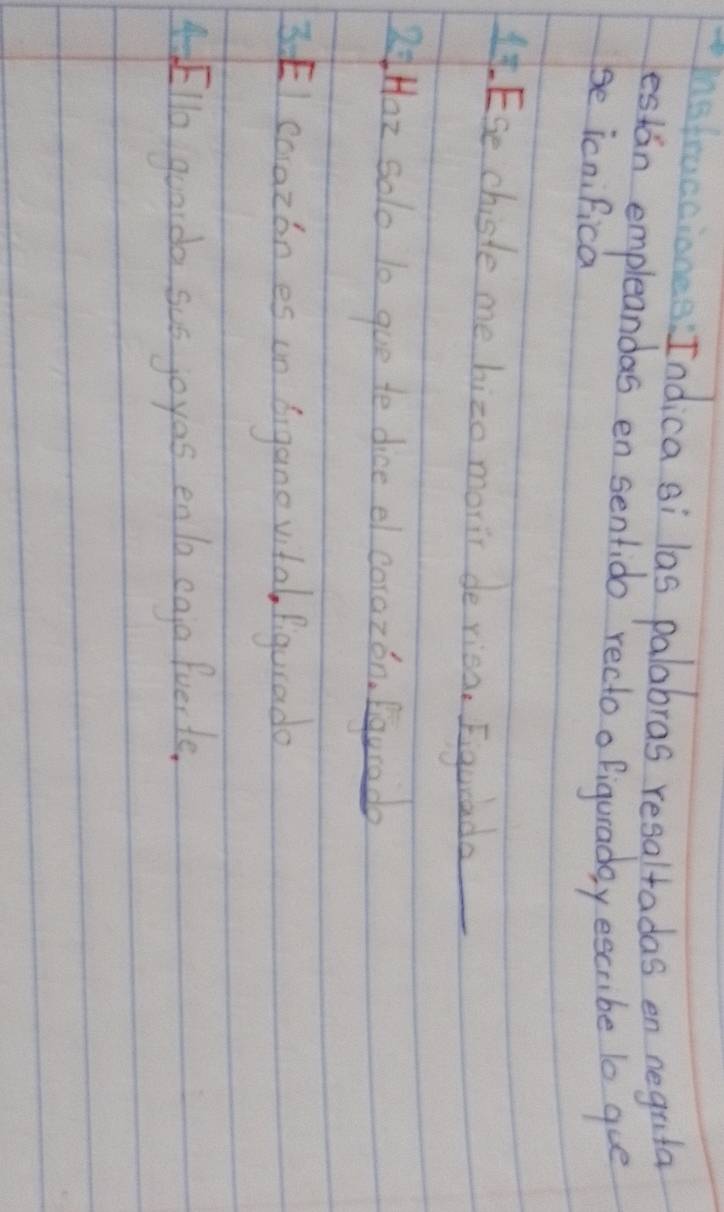 Instrucciones: Indica si las palabras resaltadas en negrita
están empleandas en sentido recto o figurado, y escribe lo que
se icnifica
1=. Ese chiste me hizo morir de risa. Figurado
2=. Haz solo lo que te dice el corazón. figurado
3-El corazón es un órgano vital. figurado
4-Ella guarda sus joyas en la caja fuerte.